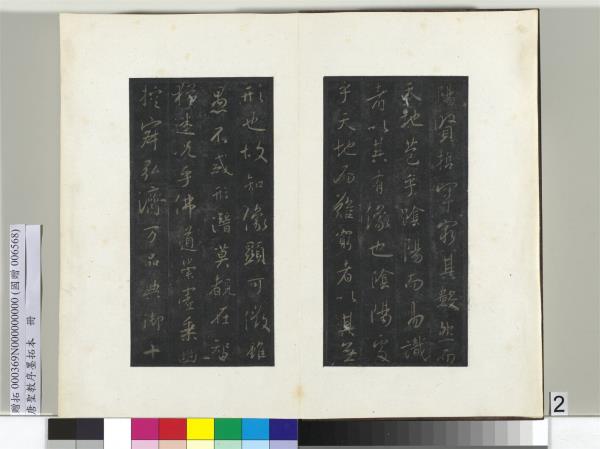 陽賢哲罕窮其數然而
天地苞乎陰陽而易識
者以其有像也陰陽處
乎天地而難窮者以其無
形也故知像顯可徵雖
愚不惑形潛莫覩在智
猶迷況乎佛道崇虛乘幽
控寂弘濟万品典御十
贈拓 000369N000000000 (國贈 006568)
唐聖教序墨拓本 冊
2